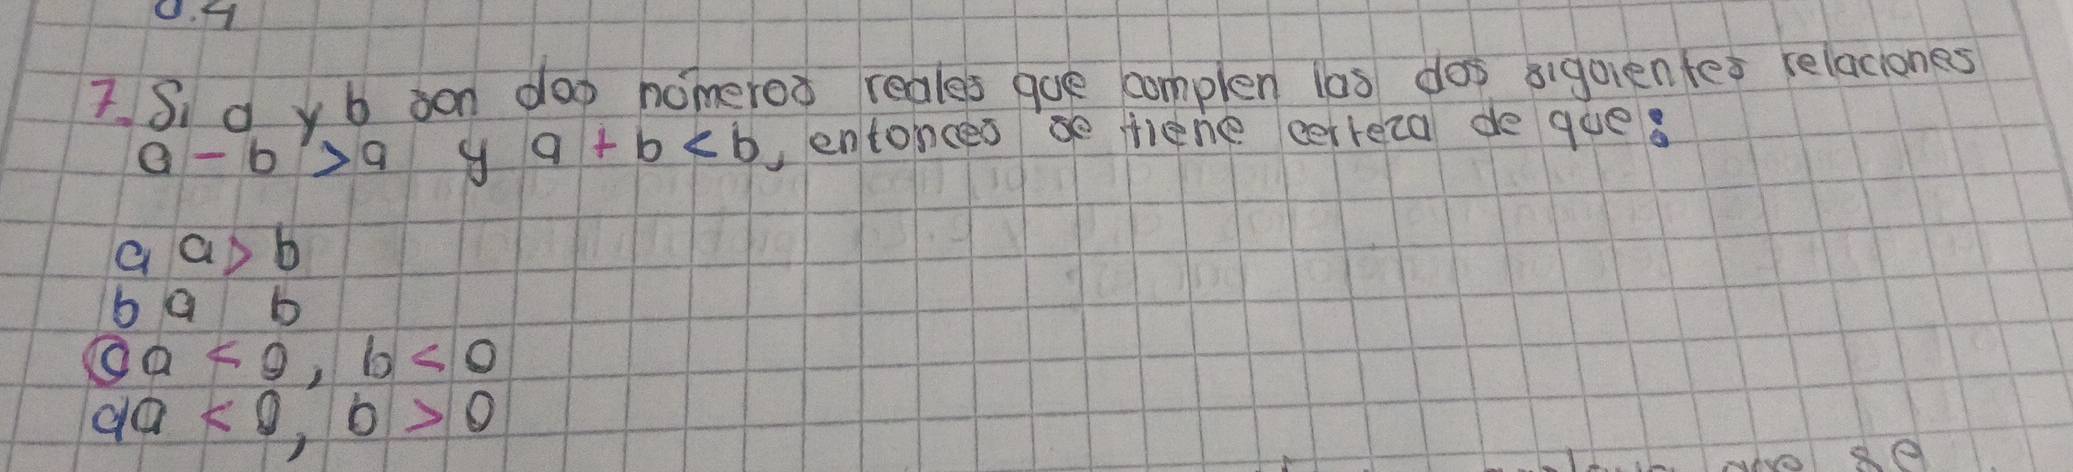 0.4
7. Si a y b son dos números reales que cumplen las dos siguientes relaciones
a - b > a y a + b < b, entonces se tiene certeza de que:
a a > b
b a b
c a < 0, b < 0
d a < 0, b > 0
se